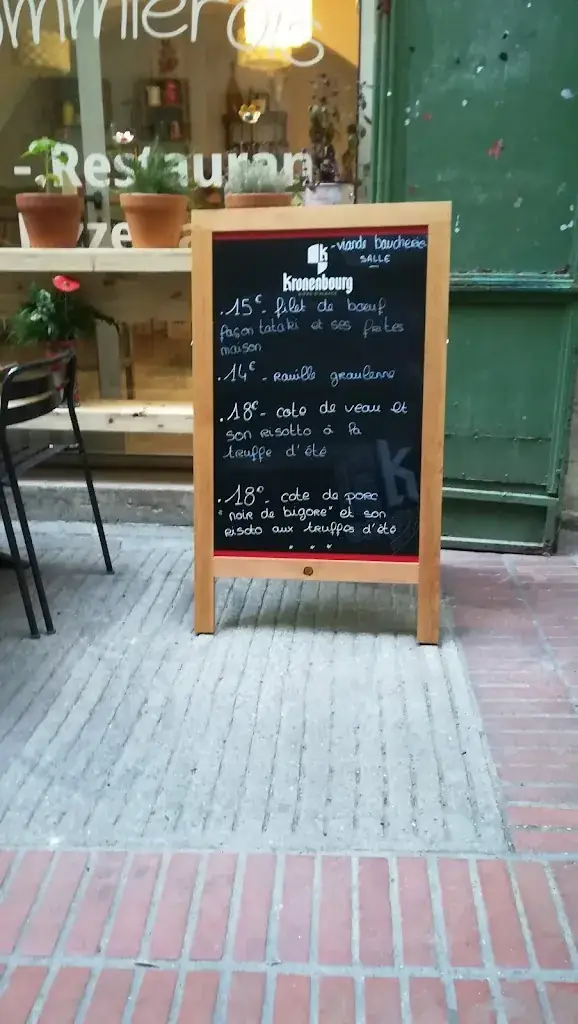 - Restauran
- viande boucherie
SALLE
Kronenbourg
. 15€ - filet de bœuf
façon tataki et ses frites
maison
. 14€ - rouille graulenne
. 18€ - cote de veau et
son risotto à la
truffe d'été
. 18€ - cote de porc
"noir de bigore" et son
risoto aux truffes d'été